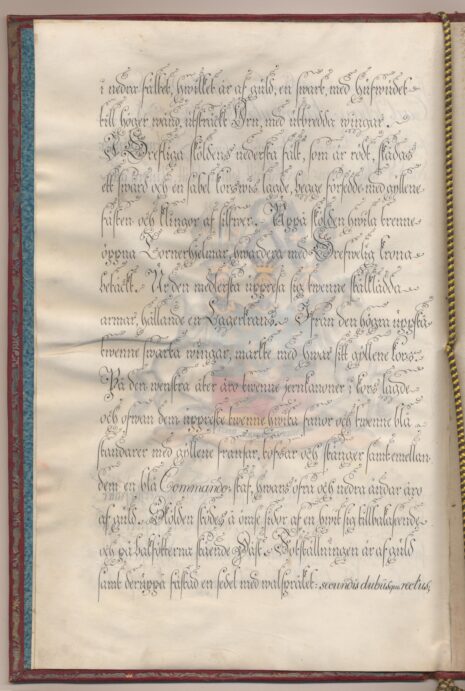 i nedra fältet, hwilket är af guld, en swart, med hufwudet
till höger wänd, utsträckt Örn, med utbredda wingar.
I Grefliga sköldens nedersta fält, som är rödt, skådas
ett swärd och en sabel korswis lagde, begge försedde med gyllene
fästen och klingor af silfwer. Uppå skölden hwila trenne
öpna Tornerhjelmar, hwardera med Grefwelig krona
betäckt. Ur den medlersta uppresa sig twenne skållklädda
armar, hållande en Lagerkrans. Ifrån den högra uppstå
twenne swarta wingar, märkte med hwar sitt gyllene kors.
På den wenstra åter äro twenne jernkanoner i kors lagde
och ofwan dem uppreste twenne hwita fanor och twenne blå
standarer med gyllene fransar, tofsar och stänger samt emellan
dem en blå Commando-staf, hwars öfra och nedra ändar äro
af guld. Skölden stödes å ömse sidor af en hwit sig tillbakaseende
och på bakfötterna stående Häst. Postställningen är af guld
samt deruppå fästad en sedel med walspråket: secundis dubiisque rectus;